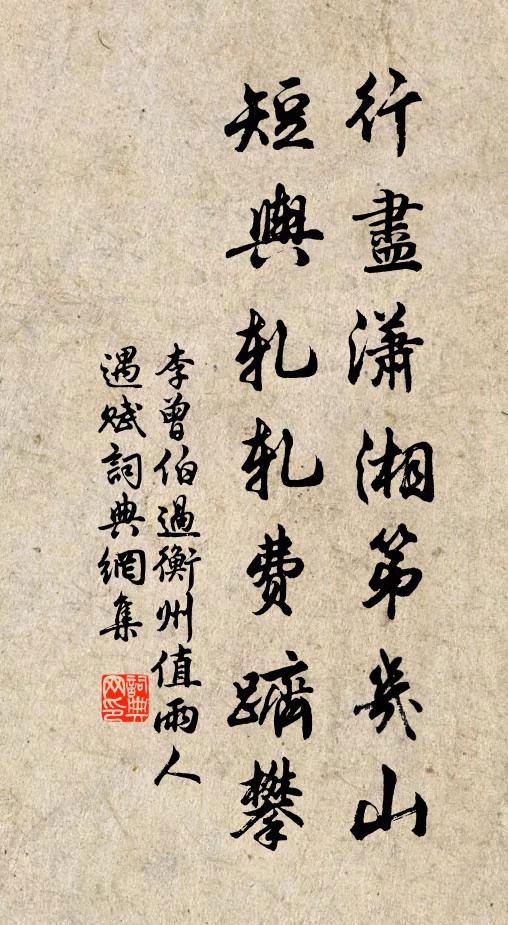 行盡瀟湘第幾山
短輿軋軋費躋攀
李曾伯過衡州值雨人
遇賦詞典網集
詞典
网印